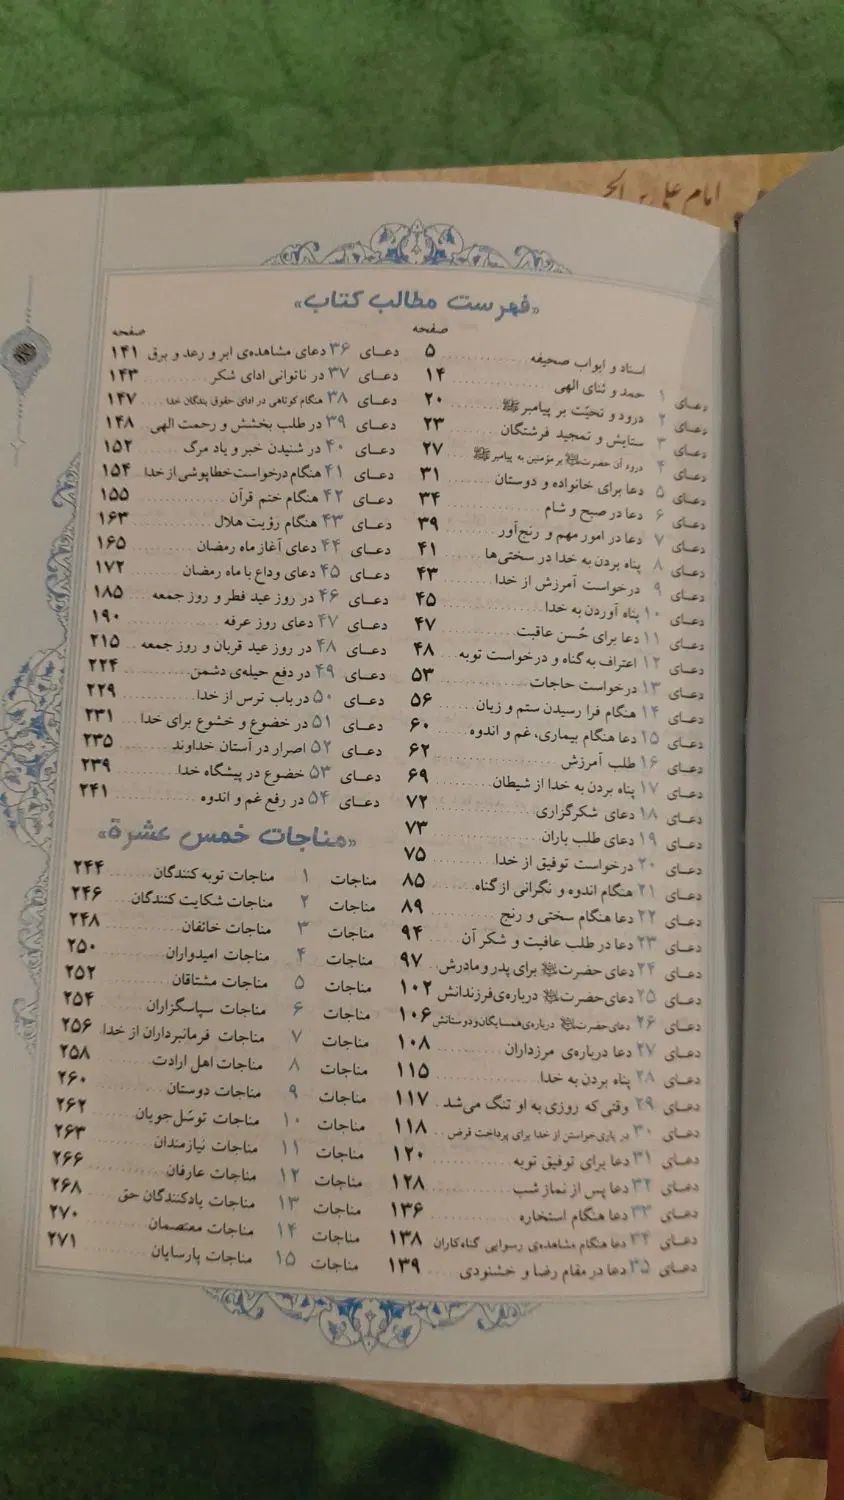 امام علی بن الح
«فهرست مطالب کتاب»
صفحه
اسناد و ابواب صحیفه ۵
دعـای ۱ حمد و ثنای الهی ۱۴
دعـای ۲ درود و تحیّت بر پیامبر ﷺ ۲۰
دعـای ۳ ستایش و تمجید فرشتگان ۲۳
دعـای ۴ درود آن حضرت ﷺ بر مؤمنین به پیامبر ﷺ ۲۷
دعـای ۵ دعا برای خانواده و دوستان ۳۱
دعـای ۶ دعا در صبح و شام ۳۴
دعـای ۷ دعا در امور مهم و رنج‌آور ۳۹
دعـای ۸ پناه بردن به خدا در سختی‌ها ۴۱
دعـای ۹ درخواست آمرزش از خدا ۴۳
دعـای ۱۰ پناه آوردن به خدا ۴۵
دعـای ۱۱ دعا برای حُسن عاقبت ۴۷
دعـای ۱۲ اعتراف به گناه و درخواست توبه ۴۸
دعـای ۱۳ درخواست حاجات ۵۳
دعـای ۱۴ هنگام فرا رسیدن ستم و زیان ۵۶
دعـای ۱۵ دعا هنگام بیماری، غم و اندوه ۶۰
دعـای ۱۶ طلب آمرزش ۶۲
دعـای ۱۷ پناه بردن به خدا از شیطان ۶۹
دعـای ۱۸ دعای شکرگزاری ۷۲
دعـای ۱۹ دعای طلب باران ۷۳
دعـای ۲۰ درخواست توفیق از خدا ۷۵
دعـای ۲۱ هنگام اندوه و نگرانی از گناه ۸۵
دعـای ۲۲ دعا هنگام سختی و رنج ۸۹
دعـای ۲۳ دعا در طلب عافیت و شکر آن ۹۴
دعـای ۲۴ دعای حضرت ﷺ برای پدر و مادرش ۹۷
دعـای ۲۵ دعای حضرت ﷺ درباره‌ی فرزندانش ۱۰۲
دعـای ۲۶ دعای حضرت ﷺ درباره‌ی همسایگان و دوستانش ۱۰۶
دعـای ۲۷ دعا درباره‌ی مرزداران ۱۰۸
دعـای ۲۸ پناه بردن به خدا ۱۱۵
دعـای ۲۹ وقتی که روزی به او تنگ می‌شد ۱۱۷
دعـای ۳۰ در یاری خواستن از خدا برای پرداخت قرض ۱۱۸
دعـای ۳۱ دعا برای توفیق توبه ۱۲۰
دعـای ۳۲ دعا پس از نماز شب ۱۲۸
دعـای ۳۳ دعا هنگام استخاره ۱۳۶
دعـای ۳۴ دعا هنگام مشاهده‌ی رسوایی گناه‌کاران ۱۳۸
دعـای ۳۵ دعا در مقام رضا و خشنودی ۱۳۹
صفحه
دعـای ۳۶ دعای مشاهده‌ی ابر و رعد و برق ۱۴۱
دعـای ۳۷ در ناتوانی ادای شکر ۱۴۳
دعـای ۳۸ هنگام کوتاهی در ادای حقوق بندگان خدا ۱۴۷
دعـای ۳۹ در طلب بخشش و رحمت الهی ۱۴۸
دعـای ۴۰ در شنیدن خبر و یاد مرگ ۱۵۲
دعـای ۴۱ هنگام درخواست خطاپوشی از خدا ۱۵۴
دعـای ۴۲ هنگام ختم قرآن ۱۵۵
دعـای ۴۳ هنگام رؤیت هلال ۱۶۳
دعـای ۴۴ دعای آغاز ماه رمضان ۱۶۵
دعـای ۴۵ دعای وداع با ماه رمضان ۱۷۲
دعـای ۴۶ در روز عید فطر و روز جمعه ۱۸۵
دعـای ۴۷ دعای روز عرفه ۱۹۰
دعـای ۴۸ در روز عید قربان و روز جمعه ۲۱۵
دعـای ۴۹ در دفع حیله‌ی دشمن ۲۲۴
دعـای ۵۰ در باب ترس از خدا ۲۲۹
دعـای ۵۱ در خضوع و خشوع برای خدا ۲۳۱
دعـای ۵۲ اصرار در آستان خداوند ۲۳۵
دعـای ۵۳ خضوع در پیشگاه خدا ۲۳۹
دعـای ۵۴ در رفع غم و اندوه ۲۴۱
«مناجات خمس عشرة»
مناجات ۱ مناجات توبه کنندگان ۲۴۴
مناجات ۲ مناجات شکایت کنندگان ۲۴۶
مناجات ۳ مناجات خائفان ۲۴۸
مناجات ۴ مناجات امیدواران ۲۵۰
مناجات ۵ مناجات مشتاقان ۲۵۲
مناجات ۶ مناجات سپاسگزاران ۲۵۴
مناجات ۷ مناجات فرمانبرداران از خدا ۲۵۶
مناجات ۸ مناجات اهل ارادت ۲۵۸
مناجات ۹ مناجات دوستان ۲۶۰
مناجات ۱۰ مناجات توسّل‌جویان ۲۶۲
مناجات ۱۱ مناجات نیازمندان ۲۶۳
مناجات ۱۲ مناجات عارفان ۲۶۶
مناجات ۱۳ مناجات یادکنندگان حق ۲۶۸
مناجات ۱۴ مناجات معتصمان ۲۷۰
مناجات ۱۵ مناجات پارسایان ۲۷۱